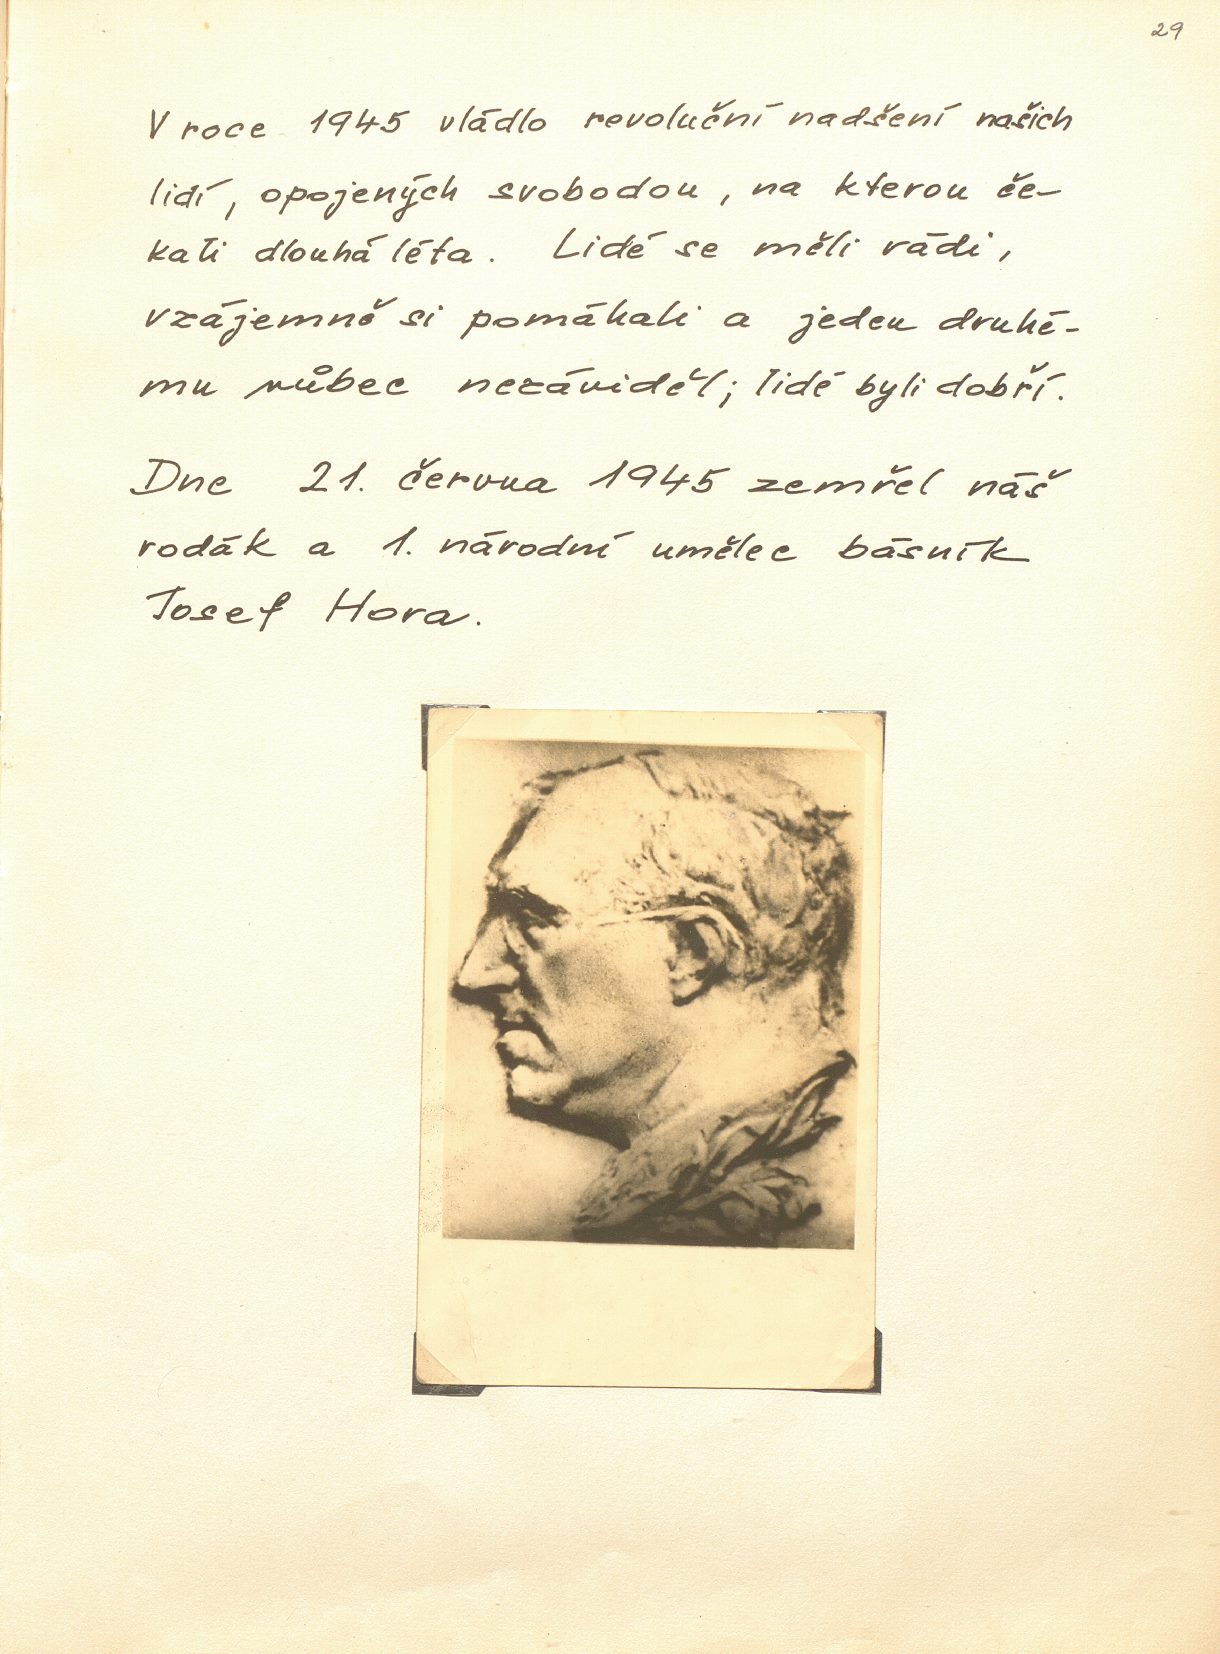 29
V roce 1945 vládlo revoluční nadšení našich
lidí, opojených svobodou, na kterou če-
kali dlouhá léta. Lidé se měli rádi,
vzájemně si pomáhali a jeden druhé-
mu vůbec nezáviděl; lidé byli dobří.
Dne 21. června 1945 zemřel náš
rodák a 1. národní umělec básník
Josef Hora.